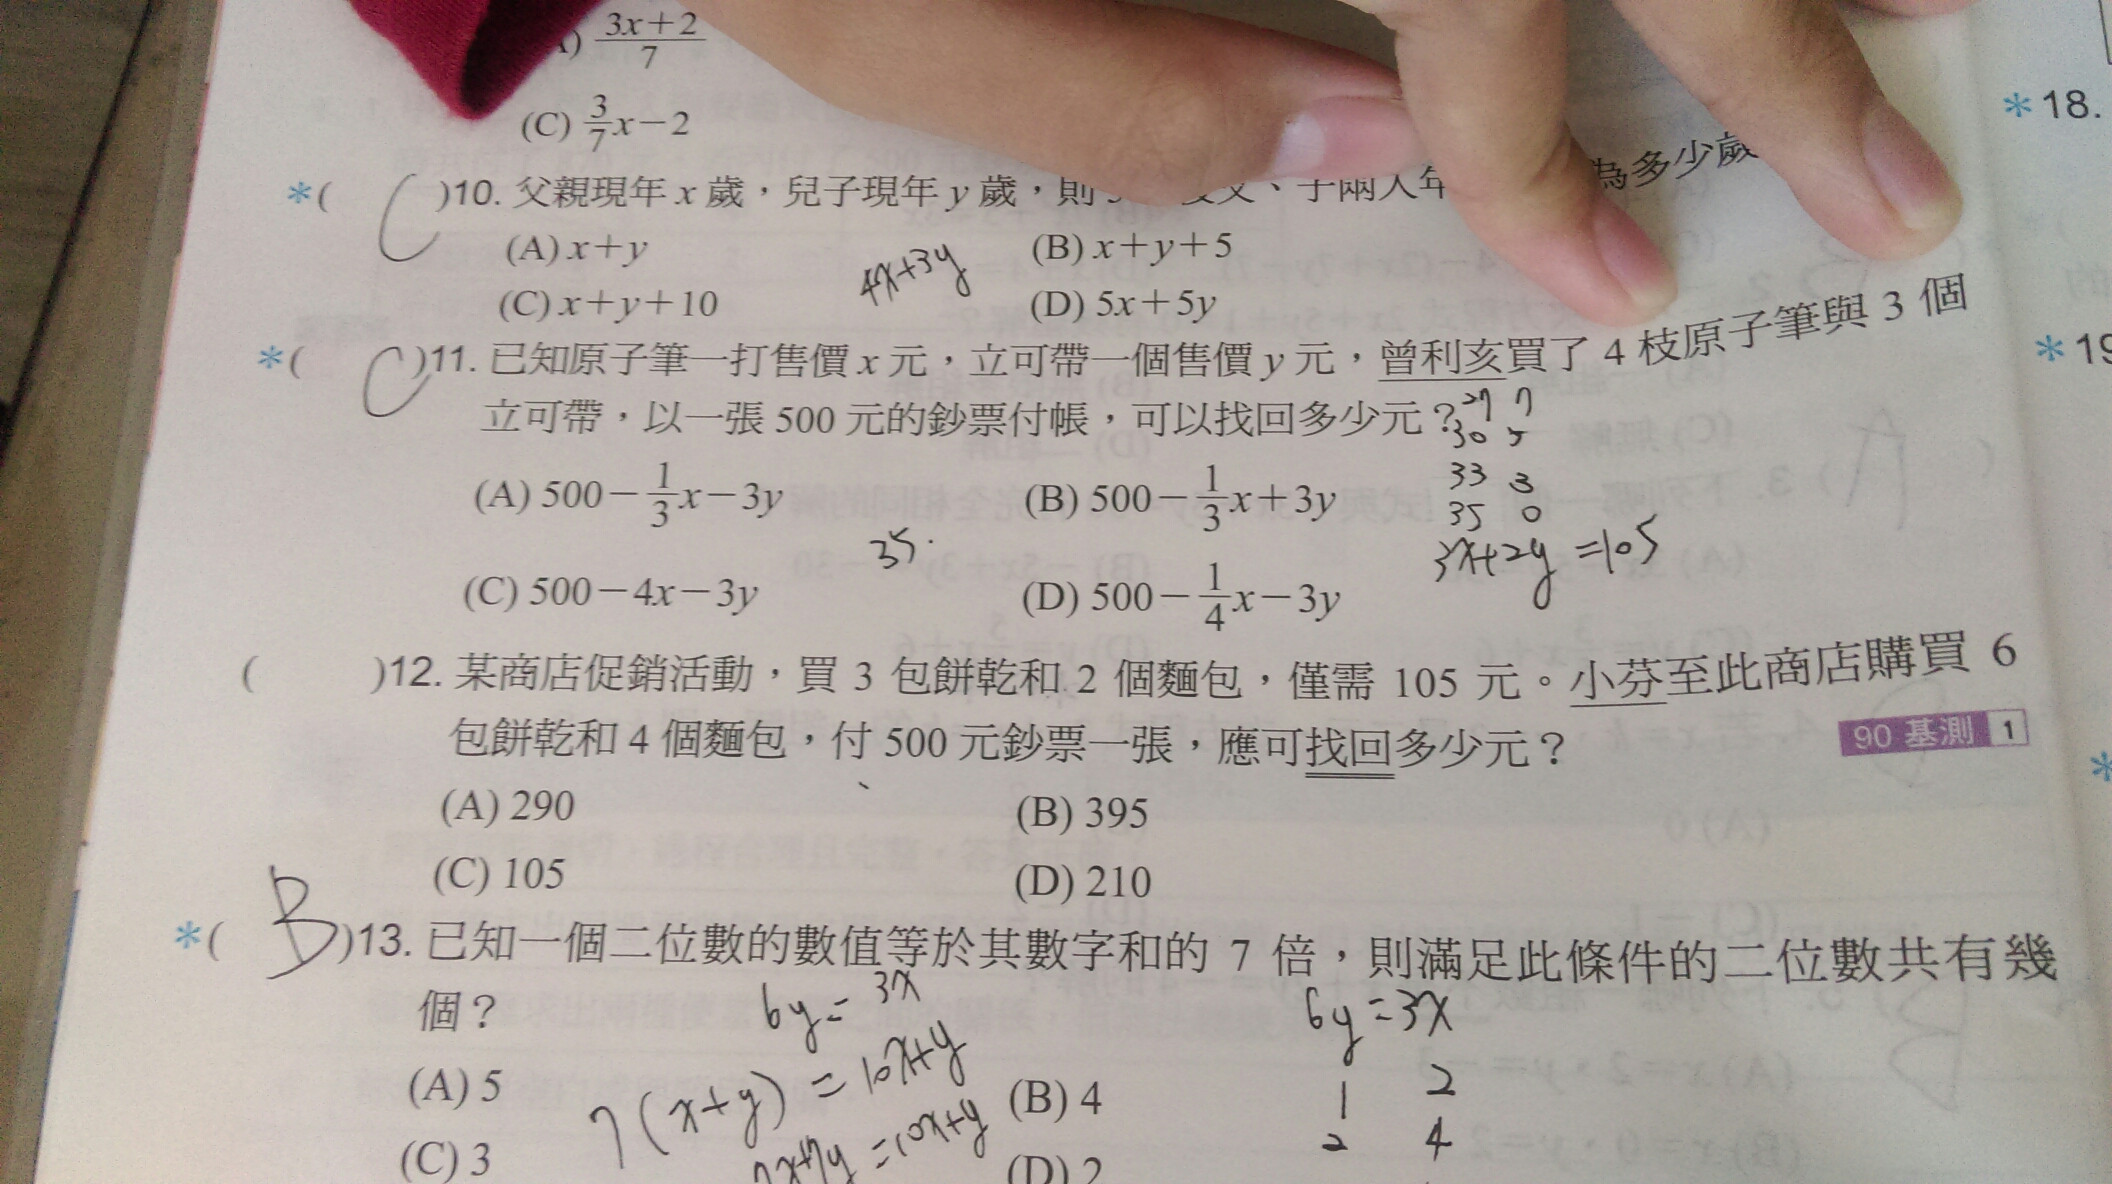 ) 3x+2/7
(C) 3/7x-2
*18.
*( C )10. 父親現年 x 歲,兒子現年 y 歲,則 、子兩人年 為多少歲
(A) x+y (B) x+y+5
4x+3y
(C) x+y+10 (D) 5x+5y
*( C )11. 已知原子筆一打售價 x 元,立可帶一個售價 y 元,曾利亥買了 4 枝原子筆與 3 個
*19
立可帶,以一張 500 元的鈔票付帳,可以找回多少元?
27 7
30 5
33 3
35 0
(A) 500-1/3x-3y (B) 500-1/3x+3y
35.
3x+2y=105
(C) 500-4x-3y (D) 500-1/4x-3y
( )12. 某商店促銷活動,買 3 包餅乾和 2 個麵包,僅需 105 元。小芬至此商店購買 6
包餅乾和 4 個麵包,付 500 元鈔票一張,應可找回多少元? 90 基測 1
(A) 290 (B) 395
(C) 105 (D) 210
*( B )13. 已知一個二位數的數值等於其數字和的 7 倍,則滿足此條件的二位數共有幾
個?
6y=3x 6y=3x
(A) 5 (B) 4
7(x+y)=10x+y
1 2
2 4
7x+7y=10x+y
(C) 3 (D) 2